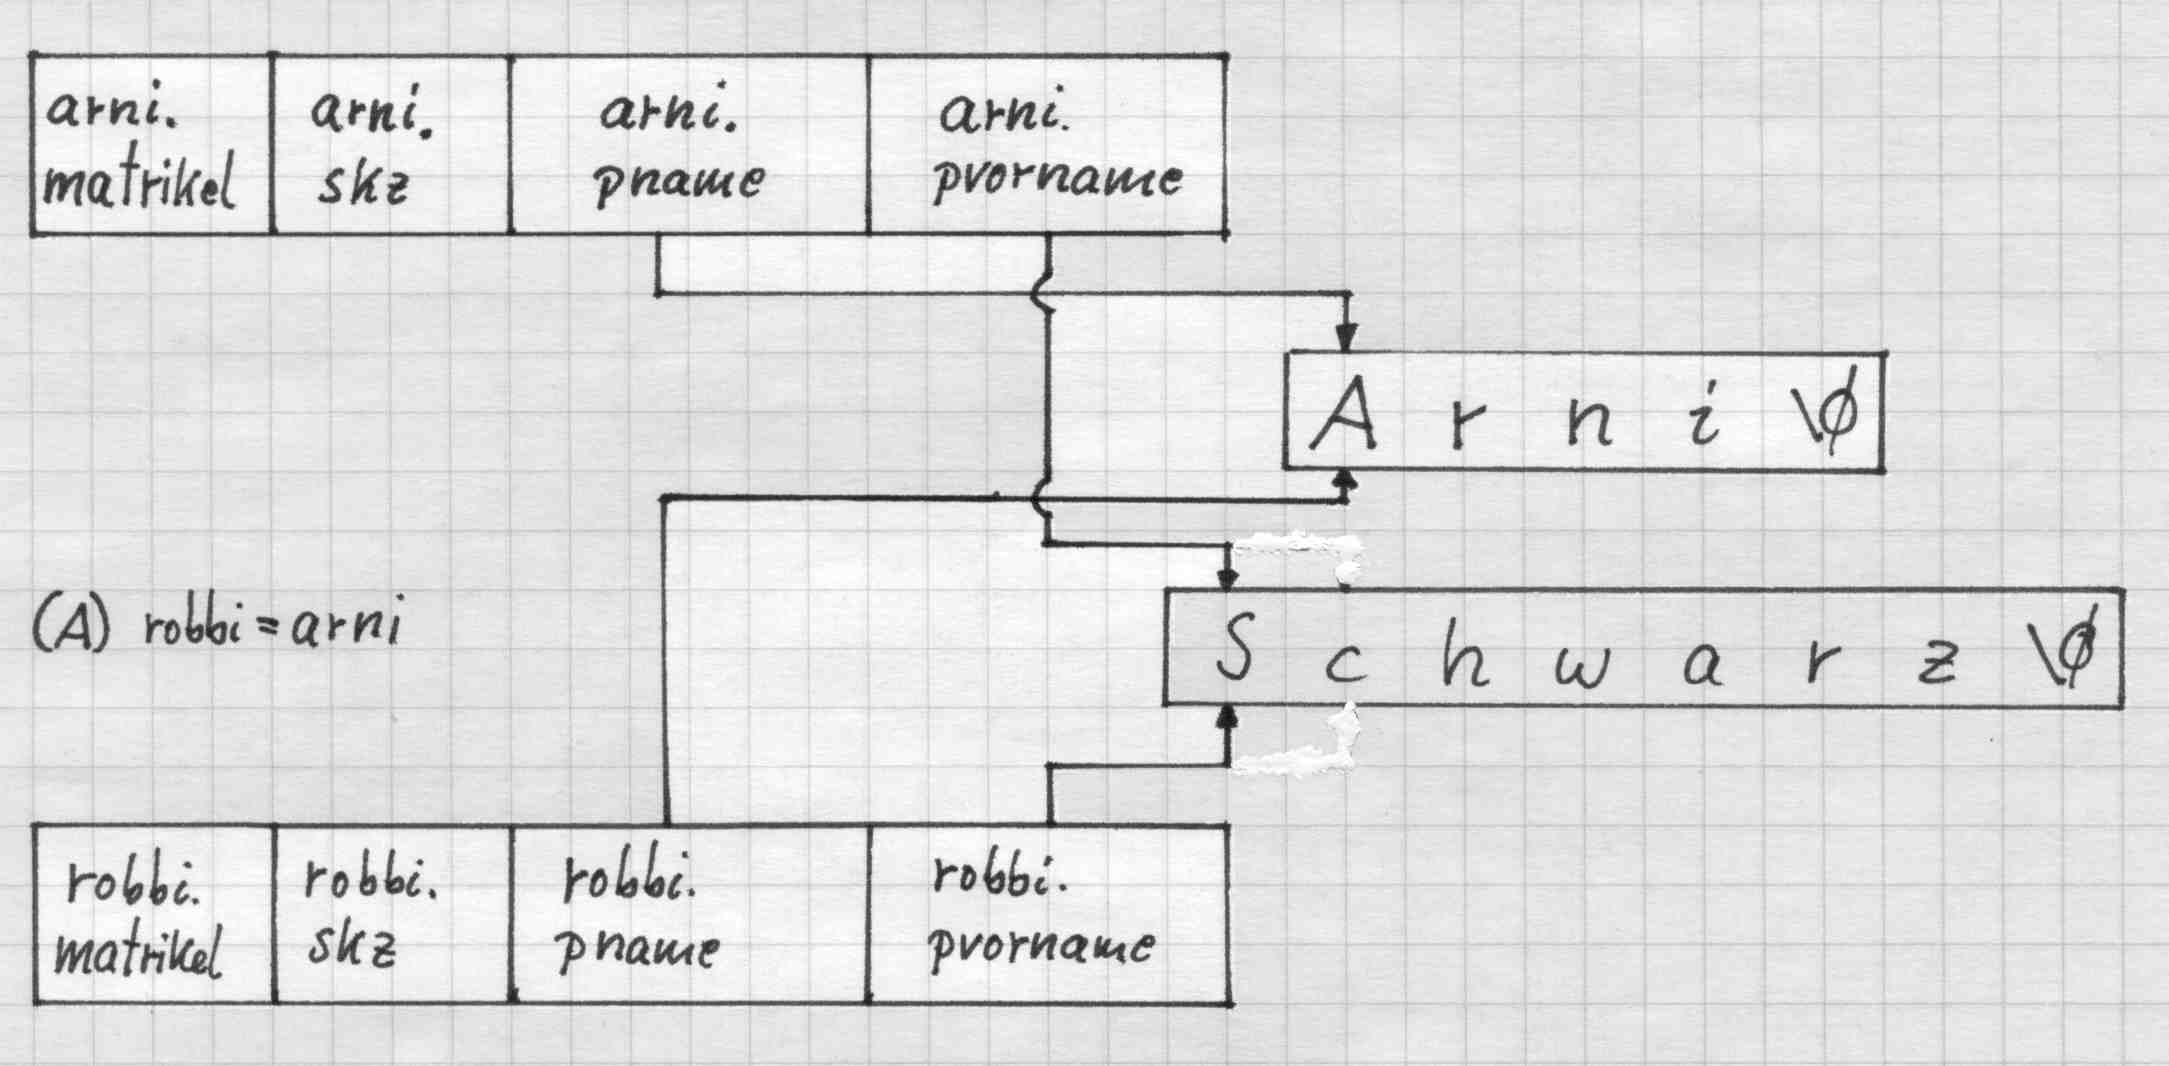 arni.
matrikel
arni.
skz
arni.
pname
arni.
pvorname
A r n i \0
(A) robbi = arni
S c h w a r z \0
robbi.
matrikel
robbi.
skz
robbi.
pname
robbi.
pvorname